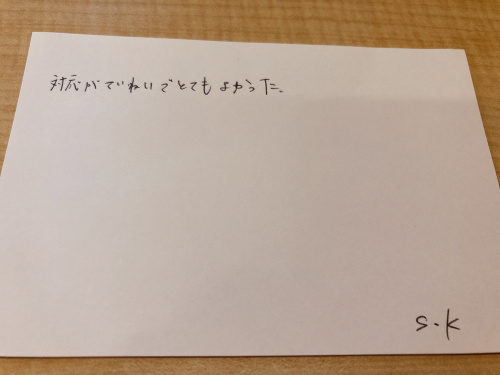 対応がていねいでとてもよかった。
S.K